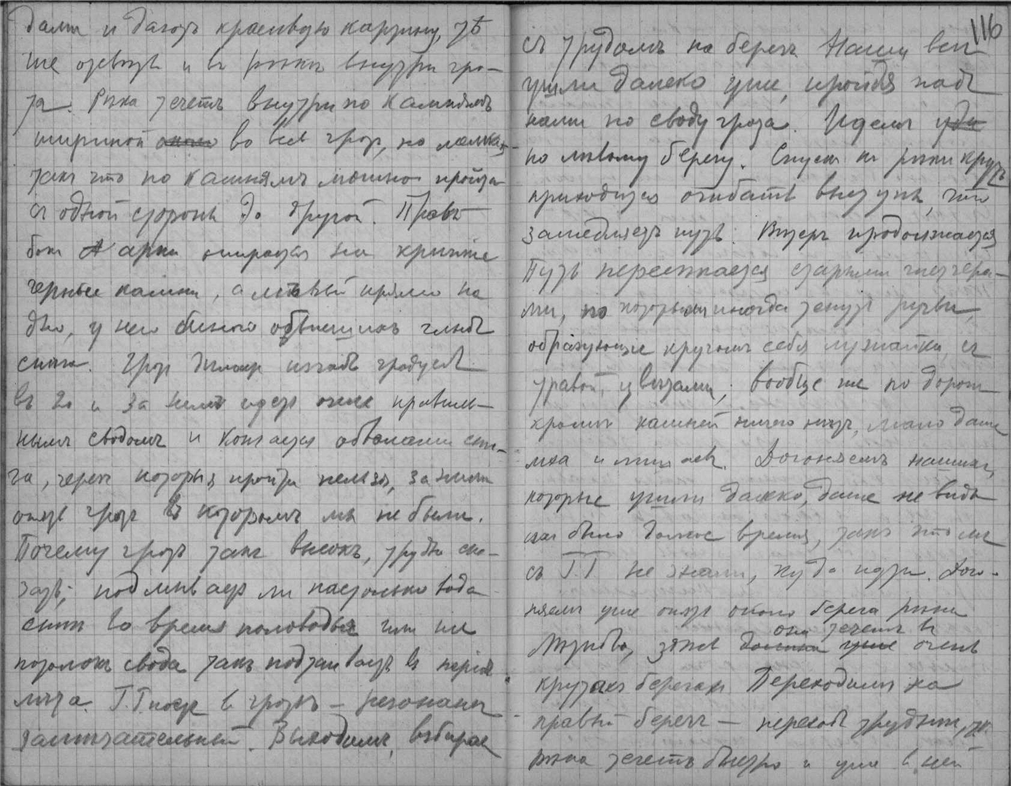 дами и даютъ красивую картину, тѣ
же отсвѣты и въ рѣкѣ внутри гро-
та. Рѣка течетъ внутри по камнямъ
шириной во весь гротъ, но мелка,
такъ что по камнямъ можно пройти
съ одной стороны до другой. Правый
бокъ арки опирается на крупные
черные камни, а лѣвый прямо на
дно, у него много обвалившихся глыбъ
снѣга. Гротъ дѣлаетъ изгибъ градусовъ
въ 20 и за нимъ идетъ очень правиль-
нымъ сводомъ и кончается обвалами снѣ-
га, черезъ которые пройти нельзя, за ними
опять гротъ въ которомъ мы не были.
Почему гротъ такъ высокъ, трудно ска-
зать; подмываетъ ли настолько вода
снѣгъ во время половодья или же
потолокъ свода такъ подтаиваетъ въ періодъ
лѣта. Т.Т. поетъ въ гротѣ — резонансъ
замѣчательный. Выходимъ, взбирае
116
съ трудомъ на берегъ. Наши всѣ
ушли далеко уже, пройдя надъ
нами по своду грота. Идемъ
по лѣвому берегу. Спускъ къ рѣкѣ крутъ
приходится огибать выступы, что
замедляетъ путь. Вѣтеръ продолжается
Путь пересѣкается старыми
ми, по которымъ иногда текутъ ручьи,
образующіе кругомъ себя лужайки съ
травой, цвѣтами; вообще же по дорогѣ
кромѣ камней ничего нѣтъ, мало даже
мха и лишаевъ. Догоняемъ нашихъ,
которые ушли далеко, даже не видно
ихъ было долгое время, такъ что мы
съ Т.Т. не знали, куда идти. Дого-
няемъ уже опять около берега рѣки
она течетъ въ
очень
крутыхъ берегахъ Переходимъ на
правый берегъ — переходъ труденъ,
рѣка течетъ быстро и уже въ ней